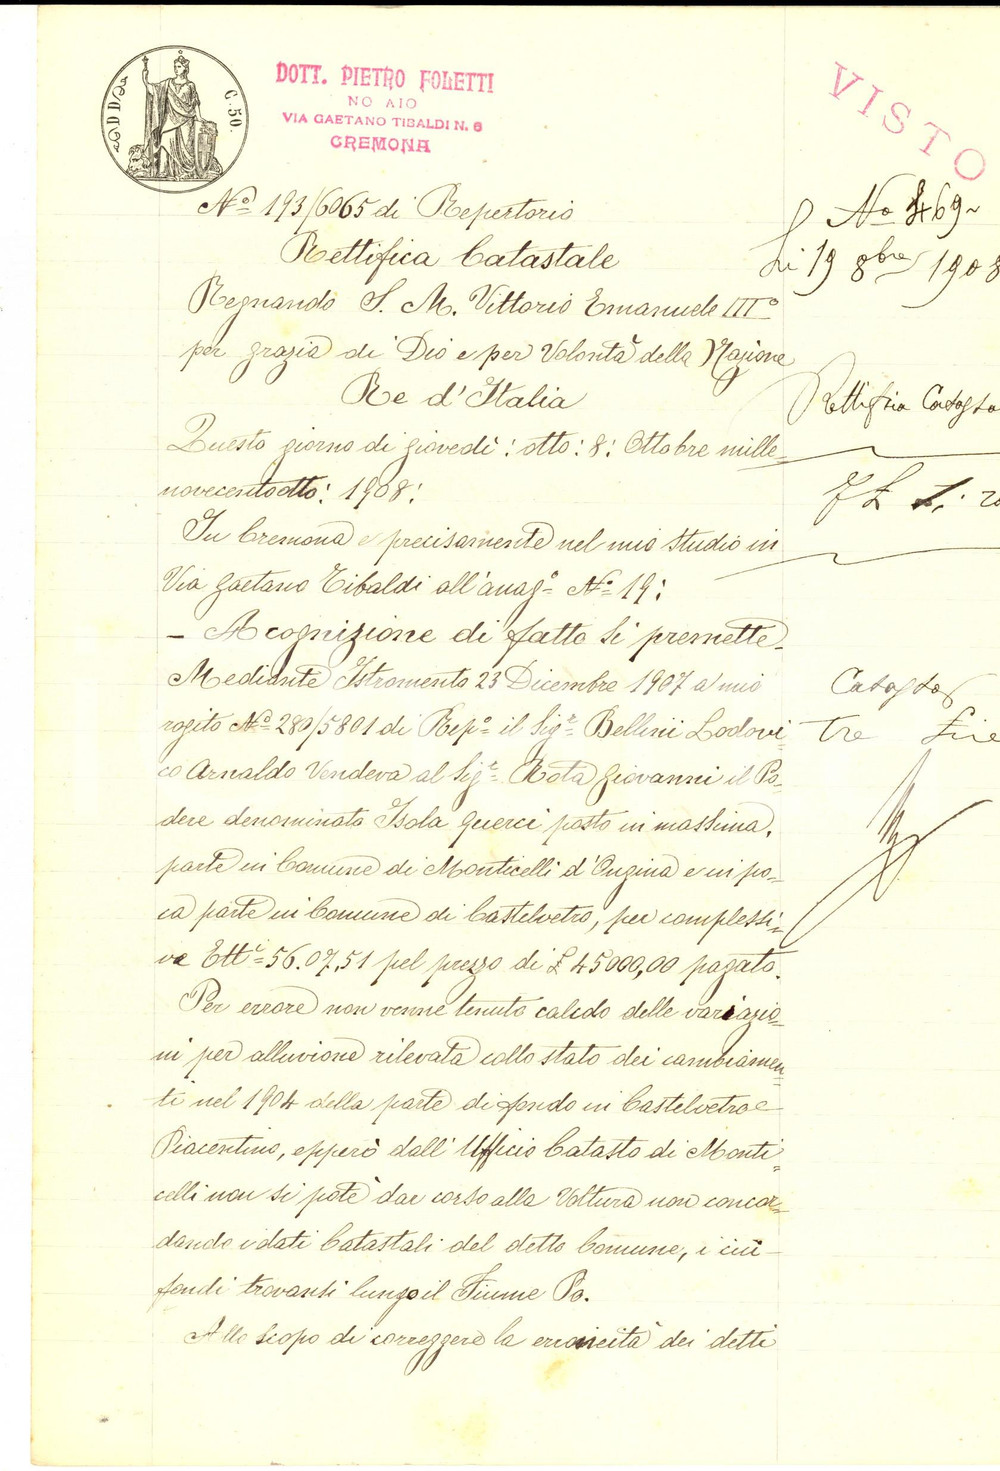 C. 50.
DOTT. PIETRO FOLETTI
NO AIO
VIA GAETANO TIBALDI N. 6
CREMONA
VISTO
No 193/6065 di Repertorio
Rettifica Catastale
Regnando S. M. Vittorio Emanuele IIIo
per grazia di Dio e per Volontà della Nazione
Re d'Italia
Questo giorno di giovedì: otto: 8: Ottobre mille-
novecentootto: 1908:
In Cremona e precisamente nel mio studio in
Via Gaetano Tibaldi all'anago No 19:
- A cognizione di fatto si premette-
Mediante Istromento 23 Dicembre 1907 a mio
rogito No 280/5801 di Repo il Sigr Bellini Lodovi-
co Arnaldo Vendeva al Sigr Rota Giovanni il Po-
dere denominato Isola Guerci posto in massima.
parte in Comune di Monticelli d'Ongina e in po-
ca parte in Comune di Castelvetro, per complessi-
ve Ett. 56.07.51 pel prezzo di £ 45000,00 pagato.
Per errore non venne tenuto calcolo delle variazio-
ni per alluvione rilevata collo stato dei cambiamen-
ti nel 1904 della parte di fondo in Castelvetro
Piacentino, epperò dall'Ufficio Catasto di Monti-
celli non si potè dar corso alla Voltura non concor-
dando i dati Catastali del detto Comune, i cui
fondi trovansi lungo il Fiume Po.
Allo scopo di correggere la erroneità dei detti
No 469
li 19 8bre 1908
Rettifica Catasta
Catasto
tre Lire